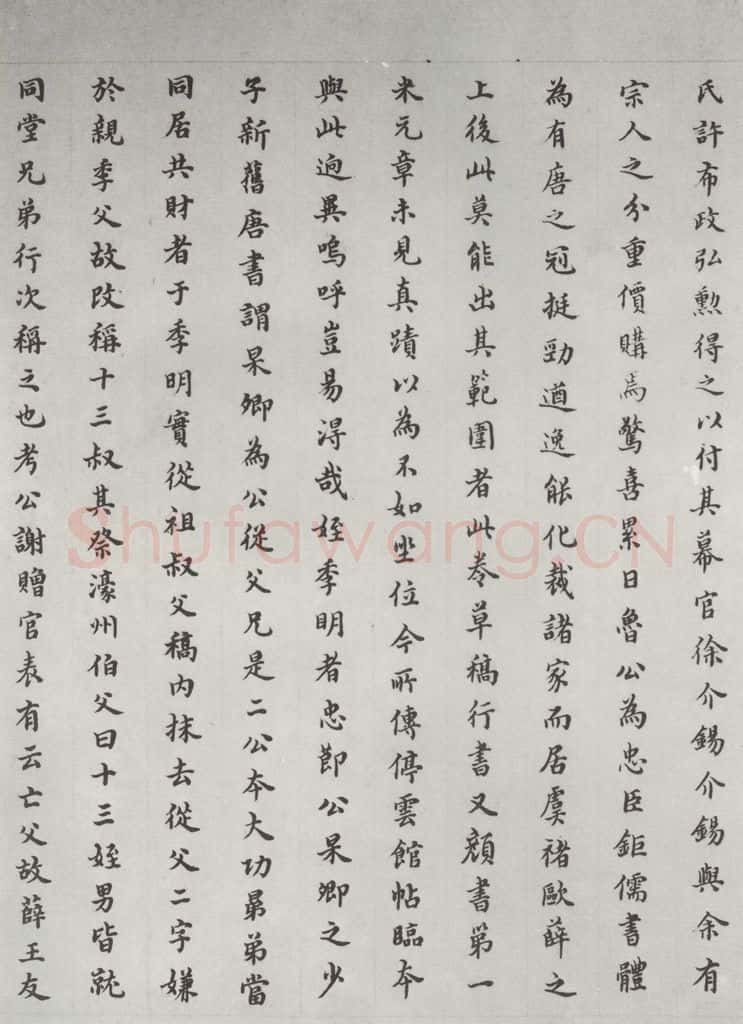 氏許布政弘勲得之以付其幕官徐介錫介錫與余有
宗人之分重價購焉驚喜累日魯公為忠臣鉅儒書體
為有唐之冠挺勁遒逸能化裁諸家而居虞褚歐薛之
上後此莫能出其範圍者此卷草稿行書又顔書第一
米元章未見真蹟以為不如坐位今所傳停雲館帖臨夲
與此逈異嗚呼豈易淂哉姪季明者忠節公杲卿之少
子新舊唐書謂杲卿為公從父兄是二公夲大功弟當
同居共財者于季明實從祖叔父稿内抹去從父二字嫌
於親季父故改稱十三叔其祭濠州伯父曰十三姪男皆就
同堂兄弟行次稱之也考公謝贈官表有云亡父故薛王友
Shufawang.CN